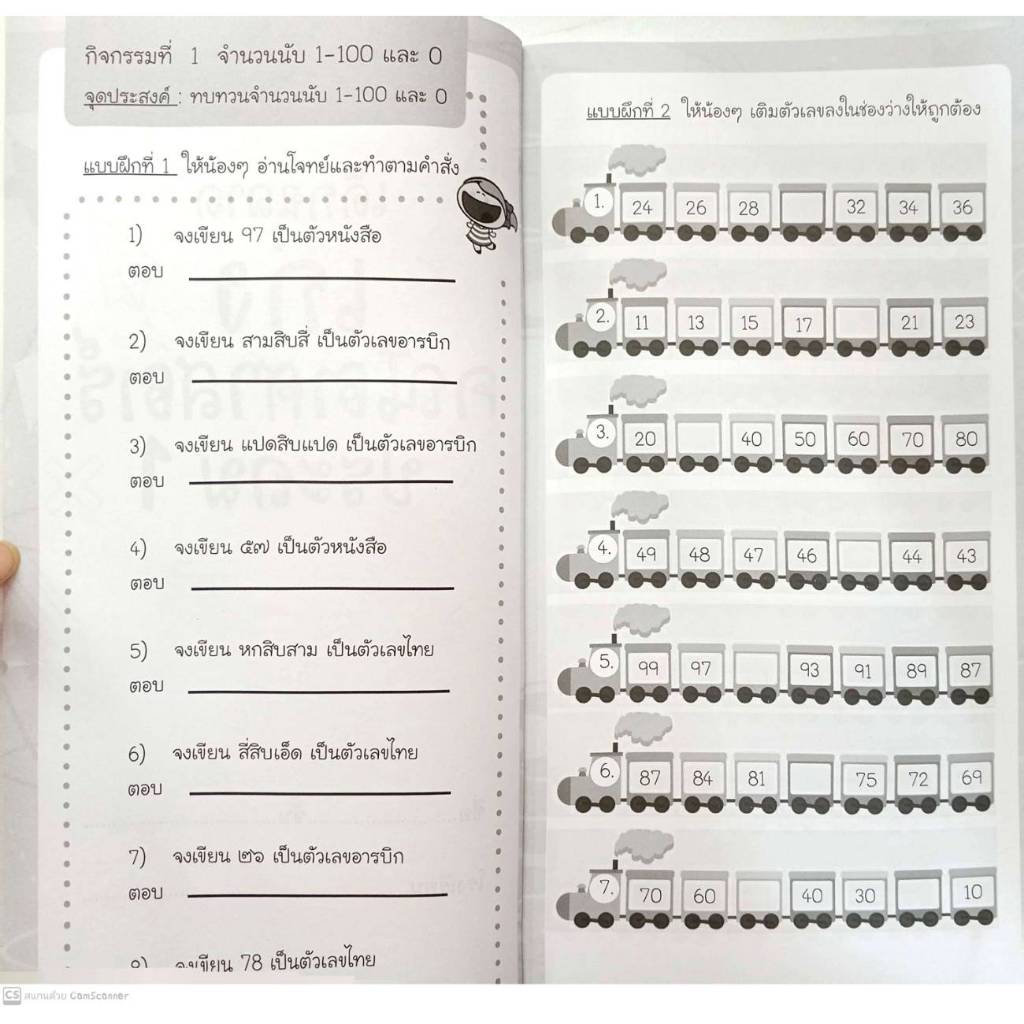 กิจกรรมที่ 1 จำนวนนับ 1-100 และ 0
จุดประสงค์ : ทบทวนจำนวนนับ 1-100 และ 0
แบบฝึกที่ 1 ให้น้องๆ อ่านโจทย์และทำตามคำสั่ง
1) จงเขียน 97 เป็นตัวหนังสือ
ตอบ
2) จงเขียน สามสิบสี่ เป็นตัวเลขอารบิก
ตอบ
3) จงเขียน แปดสิบแปด เป็นตัวเลขอารบิก
ตอบ
4) จงเขียน ๕๗ เป็นตัวหนังสือ
ตอบ
5) จงเขียน หกสิบสาม เป็นตัวเลขไทย
ตอบ
6) จงเขียน สี่สิบเอ็ด เป็นตัวเลขไทย
ตอบ
7) จงเขียน ๒๖ เป็นตัวเลขอารบิก
ตอบ
8) จงเขียน 78 เป็นตัวเลขไทย
แบบฝึกที่ 2 ให้น้องๆ เติมตัวเลขลงในช่องว่างให้ถูกต้อง
1. 24 26 28 32 34 36
2. 11 13 15 17 21 23
3. 20 40 50 60 70 80
4. 49 48 47 46 44 43
5. 99 97 93 91 89 87
6. 87 84 81 75 72 69
7. 70 60 40 30 10
CS สแกนด้วย CamScanner